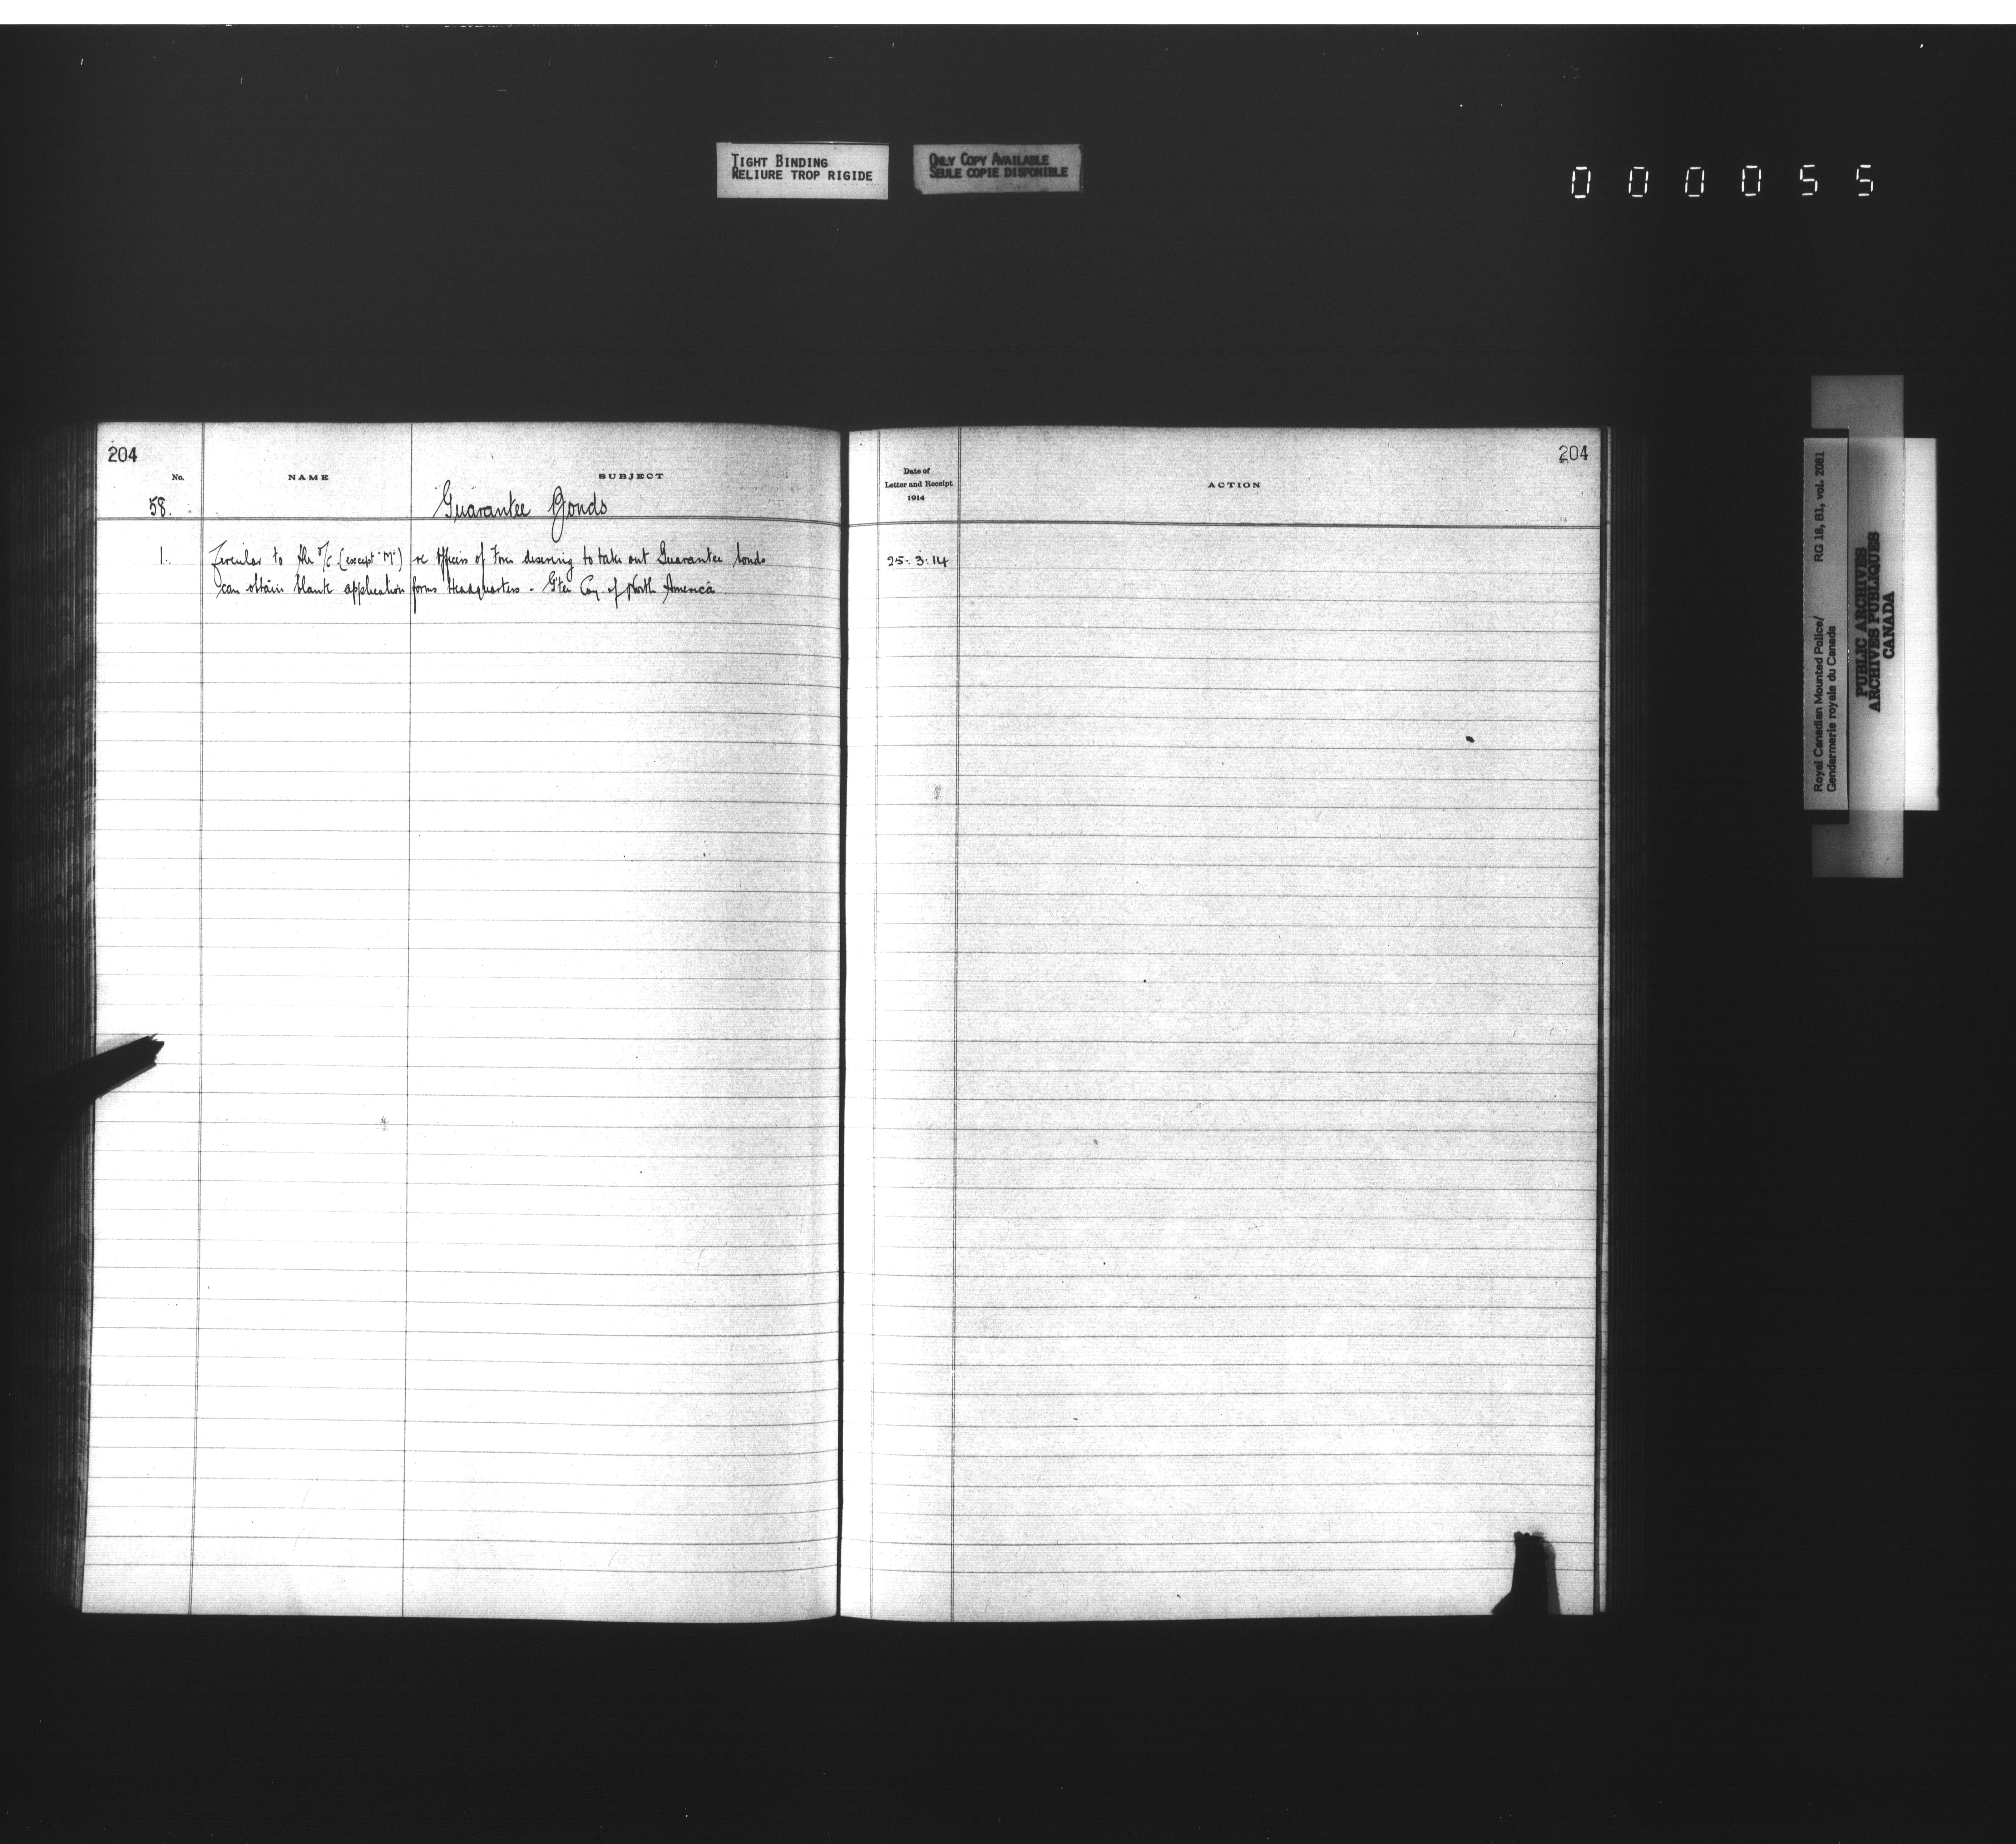 TIGHT BINDING
RELIURE TROP RIGIDE
ONLY COPY AVAILABLE
SEULE COPIE DISPONIBLE
000055
204
No. NAME SUBJECT
58. Guarantee Bonds
1. Circular to All O/C (except "M") re Officers of Force desiring to take out Guarantee bonds
can obtain blank application forms Headquarters - G'tee Coy. of North America.
204
Date of
Letter and Receipt
1914
ACTION
25.3.14
Royal Canadian Mounted Police/
Gendarmerie royale du Canada
RG 18, B1, vol. 2081
PUBLIC ARCHIVES
ARCHIVES PUBLIQUES
CANADA